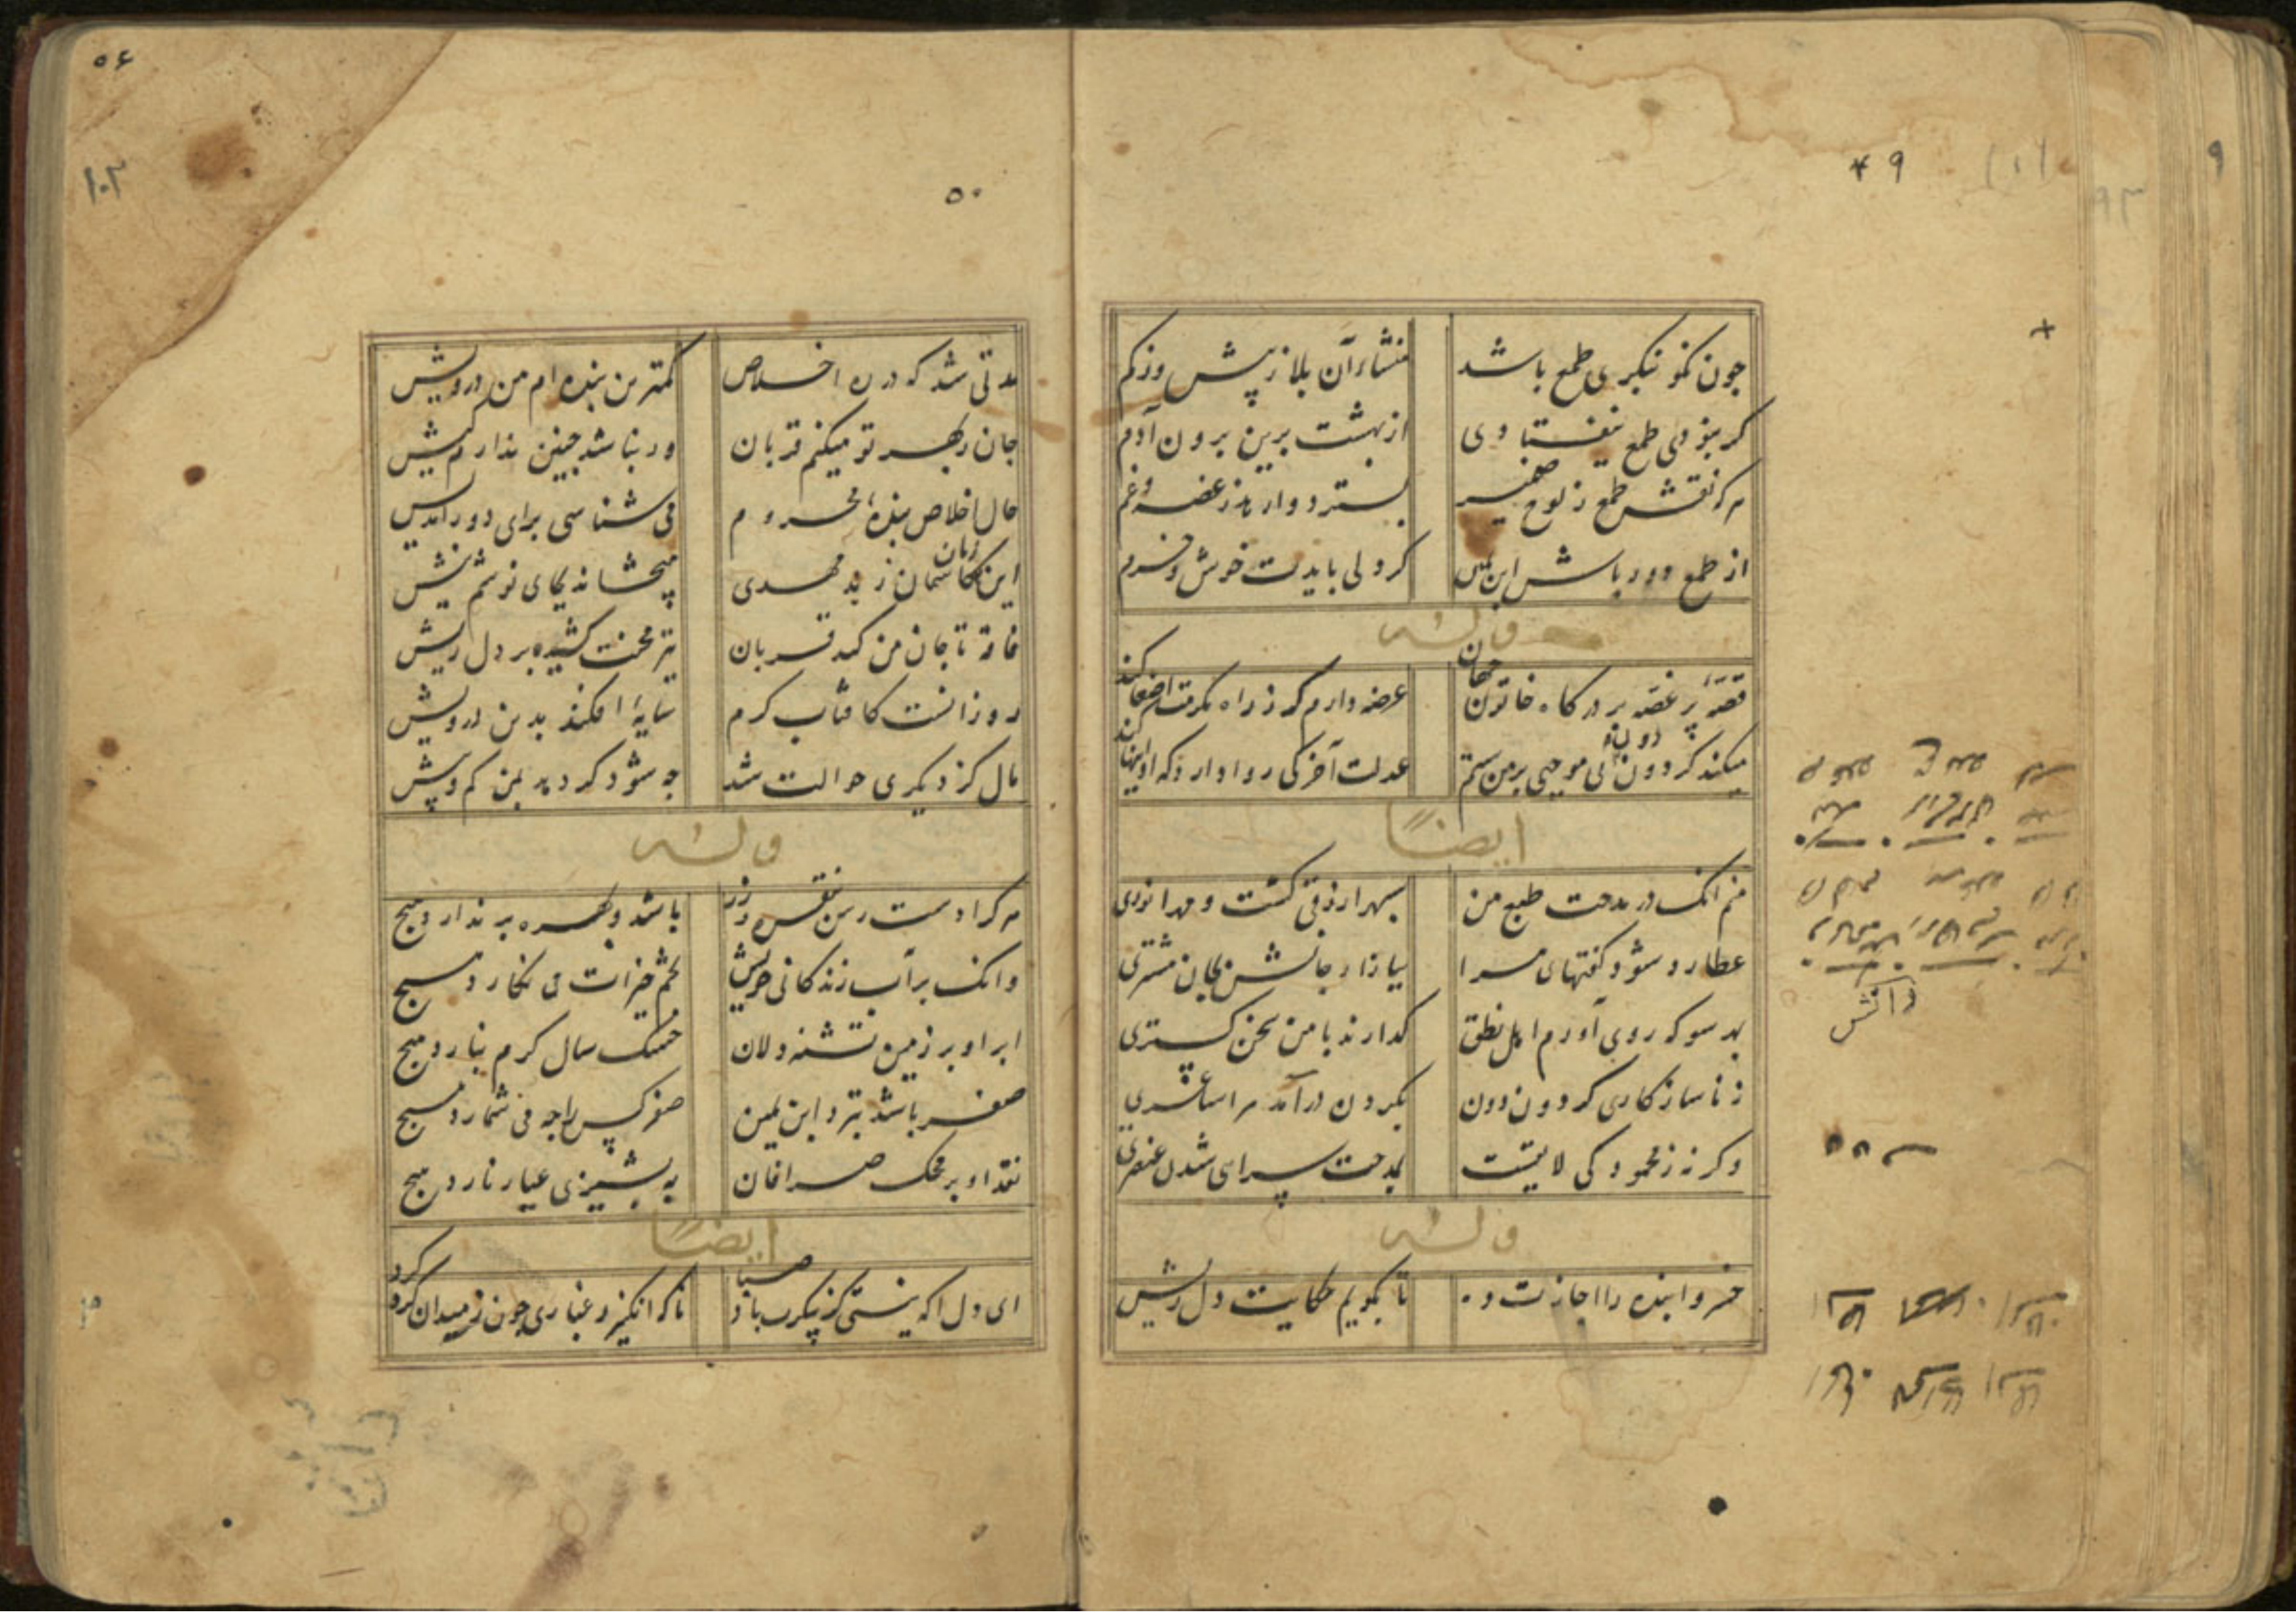 ۴۹
چون نکو بنگری طمع باشد منشاء آن بلا ز پیش و ز کم
گر نبودی طمع نیفتادی از بهشت برین برون آدم
هر که نقش طمع ز لوح ضمیر بسترد وارهد ز غصه و غم
از طمع دور باش ابن یمین گر دلی بایدت خوش و خرم
وله
قصّه پر غصّه بر درگاه خاتون جهان عرضه دارم گر ز راه مکرمت اصغا کند
میکند گردون دون بی موجبی بر من ستم عدلت آخر کی روا دارد که او اینها کند
ایضاً
منم آنک در مدحت طبع من سپهر ارزقی گشت و مه انوری
عطارد شود گفتهای مرا ببازار جانش بجان مشتری
بهر سو که روی آورم اهل نطق گذارند با من سخن گستری
ز ناسازگاری گردون دون بگردون درآمد مرا شاعری
وگرنه ز محمود کی لایقست بمدحت سرای شدن عنصری
وله
خسروا بنده را اجازت ده تا بگویم حکایت دل ریش
دانش
۵۶
۱۰۲
۵۰
مدتی شد که در ره اخلاص کمترین بنده ام من درویش
جان ز بهر تو میکنم قربان ور نباشد چنین ندارم کیش
حال اخلاص بنده محروم می شناسی برای دوراندیش
این زمان کاسمان ز بد مهری میچشاند بجای نوشم نیش
فاقه تا جان من کند قربان تیر محنت کشیده بر دل ریش
روز آنست کافتاب کرم سایهٔ افکند بدین درویش
مال کز دیگری حوالت شد چه شود گر دهد بمن کم و بیش
وله
هر کرا دست رس نقره و زر باشد و بهره بر ندارد هیچ
وانک بر آب زندگانی خویش تخم خیرات می نکارد هیچ
ابر او بر زمین تشنه دلان خشک سال کرم نبارد هیچ
صفر باشد بنزد ابن یمین صفر کس را چه می شمارد هیچ
نقد او بر محک صرافان به پشیزی عیار نارد هیچ
ایضاً